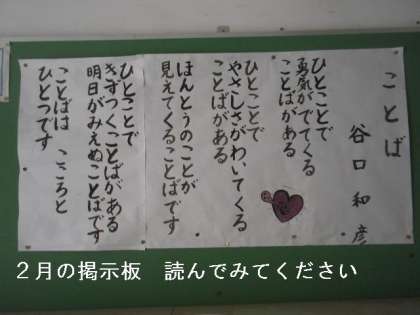 ことば
谷口和彦
ひとことで
勇気がでてくる
ことばがある
ひとことで
やさしさがわいてくる
ことばがある
ほんとうのことが
見えてくることばです
ひとことで
きずつくことばがある
明日がみえぬことばです
ことばは こころと
ひとつです
2月の掲示板 読んでみてください